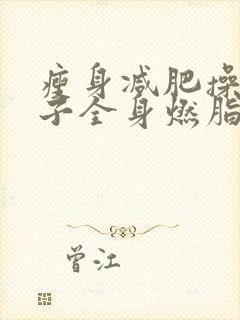 瘦身减肥操
子全身燃脂
曾江